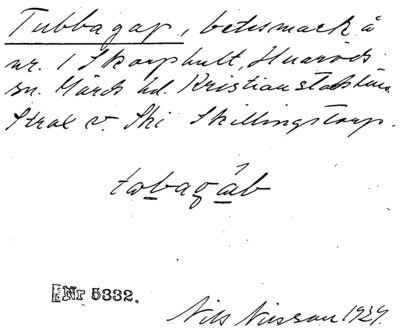 Tubbagap, betesmark å
nr. 1 Skarphult, Huaröds
sn. Gärds hd. Kristianstads län
Strax v. Ski Skillingstorp.
tobagab
Nr 5332.
Nils Nilsson 1929.